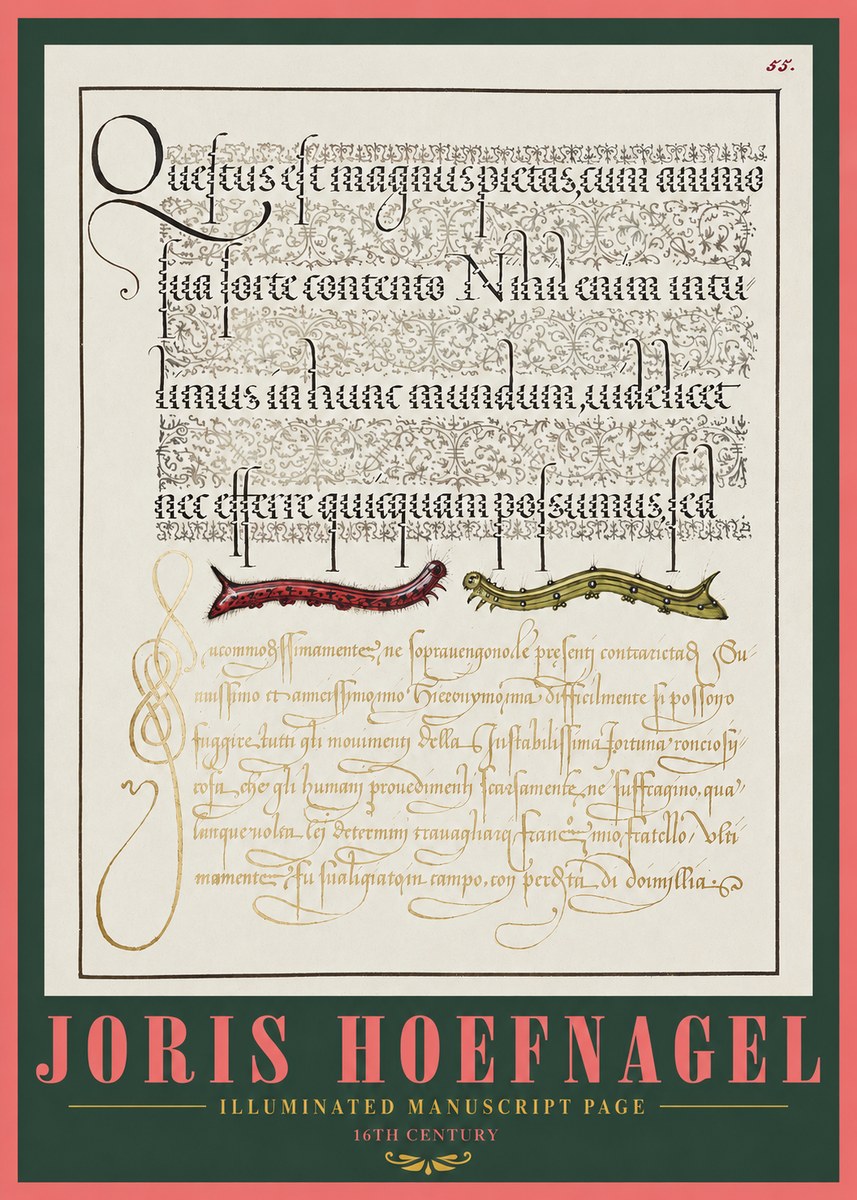 55.
Questus est magnus pietas, cum animo
sua sorte contento Nihil enim intu
limus in hunc mundum, uidelicet
nec efferre quicquam possumus, sed
ucommodissimamente, ne sopravengono, le presenti contrarietadi Su
auissimo et amicissimo mio Hieronymo, ma difficilmente si possono
fuggire tutti gli movimenti della Instabilissima fortuna
cosa che gli humani provedimenti scarsamente ne suffragino, qua
lunque volta lei determini travagliarci mio fratello, Ulti
mamente, fu sualigiato in campo, con perdita di
JORIS HOEFNAGEL
ILLUMINATED MANUSCRIPT PAGE
16TH CENTURY